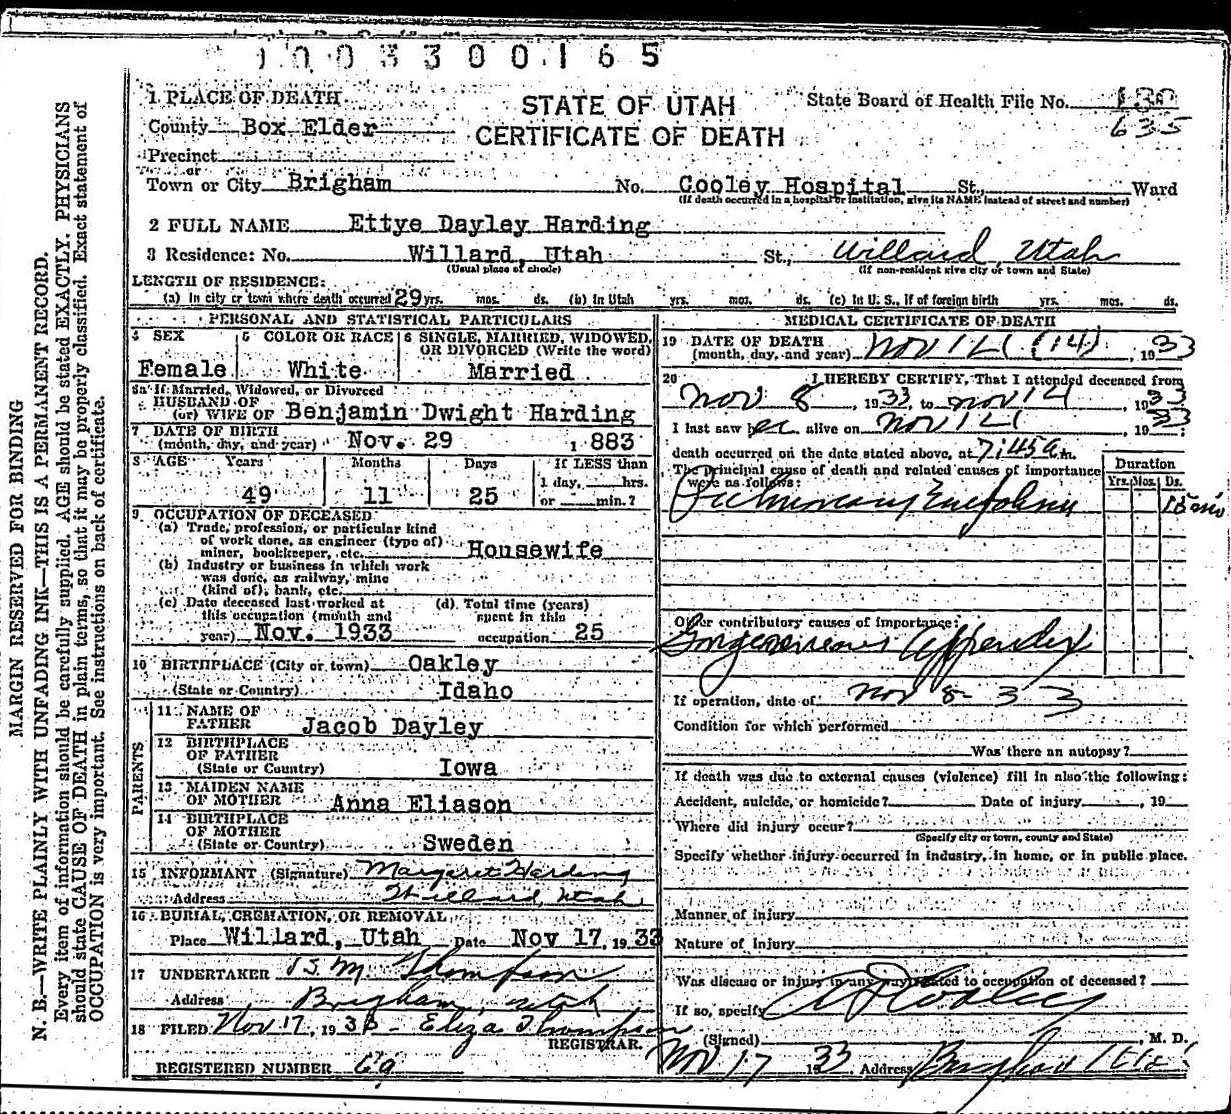 1003300165
1 PLACE OF DEATH
STATE OF UTAH
CERTIFICATE OF DEATH
State Board of Health File No. 130
635
County Box Elder
Precinct
or
Town or City Brigham No. Cooley Hospital St., Ward
(If death occurred in a hospital or institution, give its NAME instead of street and number)
2 FULL NAME Ettye Dayley Harding
3 Residence: No. Willard, Utah St., Willard, Utah
(Usual place of abode) (If non-resident give city or town and State)
LENGTH OF RESIDENCE:
(a) In city or town where death occurred 29 yrs. mos. ds. (b) In Utah yrs. mos. ds. (c) In U. S., if of foreign birth yrs. mos. ds.
PERSONAL AND STATISTICAL PARTICULARS
4 SEX
Female
5 COLOR OR RACE
White
6 SINGLE, MARRIED, WIDOWED,
OR DIVORCED (Write the word)
Married
6a If Married, Widowed, or Divorced
HUSBAND OF
(or) WIFE OF Benjamin Dwight Harding
7 DATE OF BIRTH
(month, day, and year) Nov. 29 1 883
8 AGE Years Months Days If LESS than
1 day, hrs.
49 11 25 or min.?
9. OCCUPATION OF DECEASED
(a) Trade, profession, or particular kind
of work done, as engineer (type of)
miner, bookkeeper, etc. Housewife
(b) Industry or business in which work
was done, as railway, mine
(kind of), bank, etc.
(c) Date deceased last worked at
this occupation (month and
year) Nov. 1933
(d) Total time (years)
spent in this
occupation 25
10 BIRTHPLACE (City or town) Oakley
(State or Country) Idaho
PARENTS
11 NAME OF
FATHER Jacob Dayley
12 BIRTHPLACE
OF FATHER
(State or Country) Iowa
13 MAIDEN NAME
OF MOTHER Anna Eliason
14 BIRTHPLACE
OF MOTHER
(State or Country) Sweden
15 INFORMANT (Signature) Margaret Harding
Address Willard, Utah
16 BURIAL, CREMATION, OR REMOVAL
Place Willard, Utah Date Nov 17, 1933
17 UNDERTAKER M. Thompson
Address Brigham, Utah
18 FILED Nov 17, 1933 - Eliza Thompson
REGISTRAR.
REGISTERED NUMBER 69
MEDICAL CERTIFICATE OF DEATH
19 DATE OF DEATH
(month, day, and year) Nov 14 (14) , 1933
20 I HEREBY CERTIFY, That I attended deceased from
Nov 8, 1933, to Nov 14 1933
I last saw her alive on Nov 14 1933
death occurred on the date stated above, at 7:45 a.m.
The principal cause of death and related causes of importance
were as follows:
Duration
Yrs. Mos. Ds.
Pulmonary 15 min
Other contributory causes of importance:
Appendix
If operation, date of Nov 8-33
Condition for which performed
Was there an autopsy?
If death was due to external causes (violence) fill in also the following:
Accident, suicide, or homicide? Date of injury , 19
Where did injury occur?
(Specify city or town, county and State)
Specify whether injury occurred in industry, in home, or in public place.
Manner of injury
Nature of injury
Was disease or injury in any way related to occupation of deceased?
If so, specify
(Signed) Cooley , M. D.
Nov 17 1933 Address Brigham Utah
MARGIN RESERVED FOR BINDING
N. B.—WRITE PLAINLY WITH UNFADING INK—THIS IS A PERMANENT RECORD.
Every item of information should be carefully supplied. AGE should be stated EXACTLY. PHYSICIANS
should state CAUSE OF DEATH in plain terms, so that it may be properly classified. Exact statement of
OCCUPATION is very important. See instructions on back of certificate.